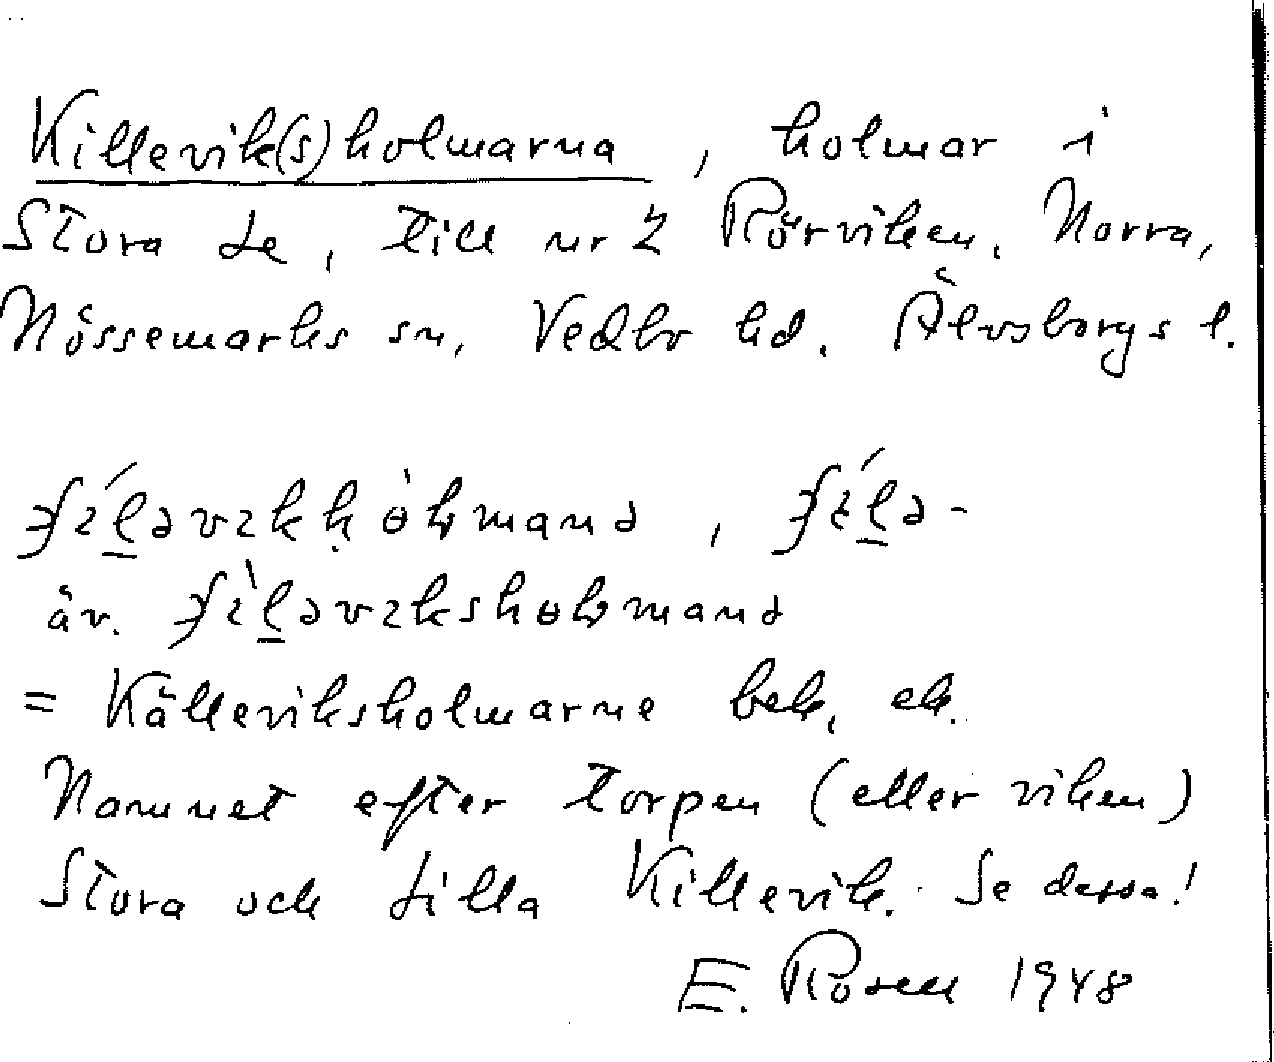 Killevik(s)holmarna, holmar i
Stora Le, till nr 2 Rörviken, Norra,
Nössemarks sn, Vedbo hd. Älvsborgs l.
äv.
= Källeviksholmarne bek, ek.
Namnet efter torpen (eller viken)
Stora och Lilla Killevik. Se dessa!
E. Rosell 1948